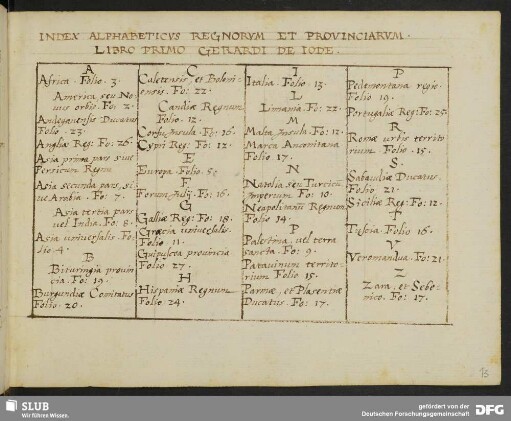 INDEX ALPHABETICVS REGNORVM ET PROVINCIARVM.
LIBRO PRIMO GERARDI DE IODE.
A
Africa. Folio. 3.
America seu No-
uus orbis. Fo: 2.
Andegauensis Ducatus
Folio. 23.
Angliæ Reg: Fo: 26.
Asia prima pars siue
Persicum Regnu
Asia secunda pars, si-
ue Arabia. Fo: 7.
Asia tertia pars
uel India. Fo: 8.
Asia uniuersalis. Fo-
lio. 4.
B
Bituringia prouin-
cia. Fo: 19.
Burgundiæ Comitatus
Folio. 20.
C
Caletensis, et Boloni-
ensis. Fo: 22.
Candiæ Regnum
Folio. 12.
Corfu, insula. Fo: 16.
Cypri Reg: Fo: 12.
E
Europa. Folio. 5.
F
Forum Julij. Fo: 16.
G
Galliæ Reg: Fo: 18.
Græcia uniuersalis.
Folio. 11.
Guipuscoa prouincia
Folio 27.
H
Hispaniæ Regnum
Folio 24.
I
Italia. Folio. 13.
L
Limania. Fo: 22.
M
Malta, Insula. Fo: 12.
Marca Anconitana
Folio 17.
N
Natolia seu Turcicu
imperium. Fo: 10.
Neapolitanũ Regnum
Folio 14.
P
Palestina, uel terra
sancta. Fo: 9.
Patauinum territo-
rium Folio 15.
Parmæ, et Plasentiæ
Ducatus. Fo: 17.
P
Pedemontana regio.
Folio 19.
Portugalie Reg: Fo: 25.
R
Romæ urbis territo
rium Folio. 15.
S.
Sabaudiæ Ducatus.
Folio 21.
Siciliæ Reg: Fo: 12.
T
Tuscia Folio 16.
V
Veromandua. Fo: 21.
Z
Zara, et Sebe-
nico. Fo: 17.
SLUB
Wir führen Wissen.
gefördert von der
Deutschen Forschungsgemeinschaft
DFG